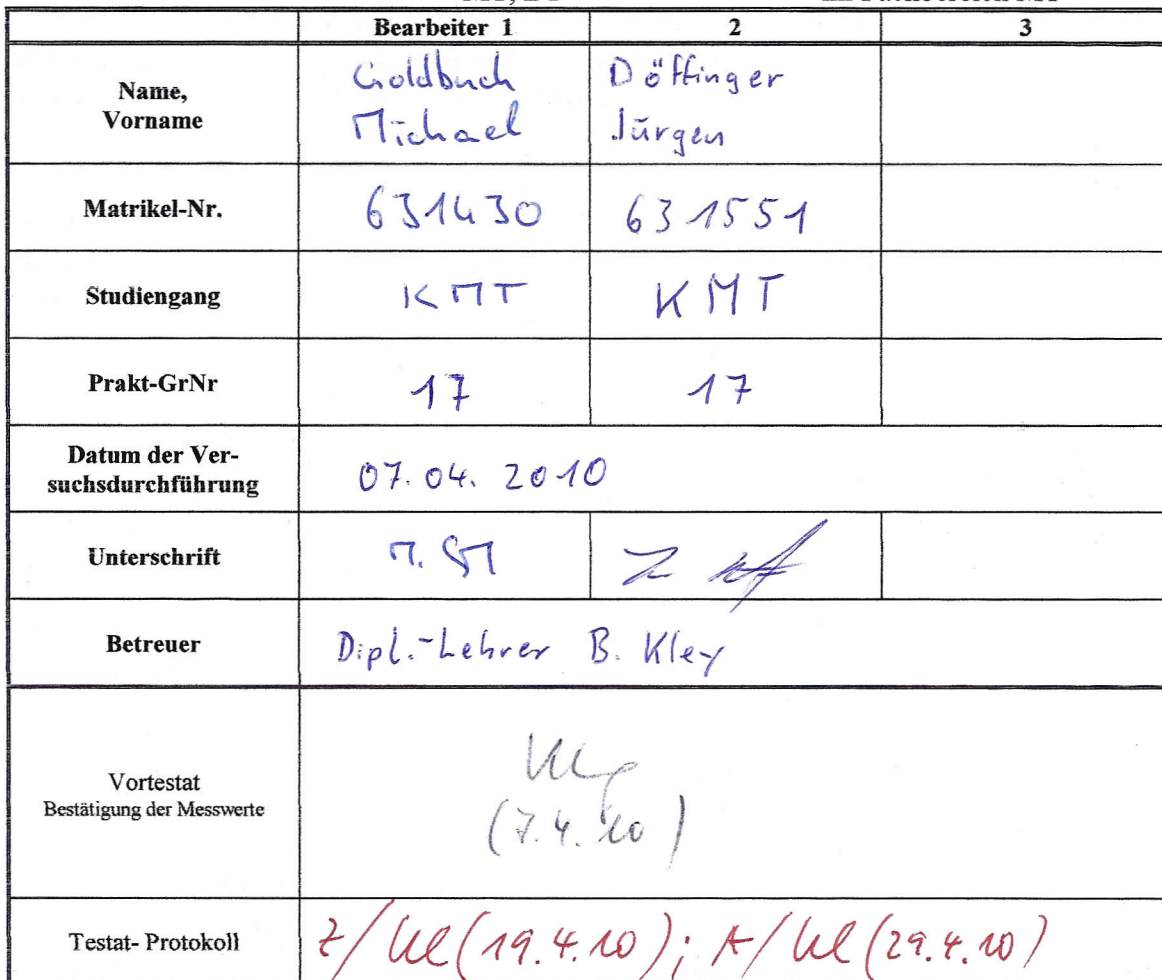 Bearbeiter 1 2 3
Name, Goldbuch Döffinger
Vorname Michael Jürgen
Matrikel-Nr. 631430 631551
Studiengang KMT KMT
Prakt-GrNr 17 17
Datum der Ver-
suchsdurchführung 07.04.2010
Unterschrift
Betreuer Dipl.-Lehrer B. Kley
Vortestat
Bestätigung der Messwerte
(7.4.10)
Testat- Protokoll (19.4.10); (29.4.10)